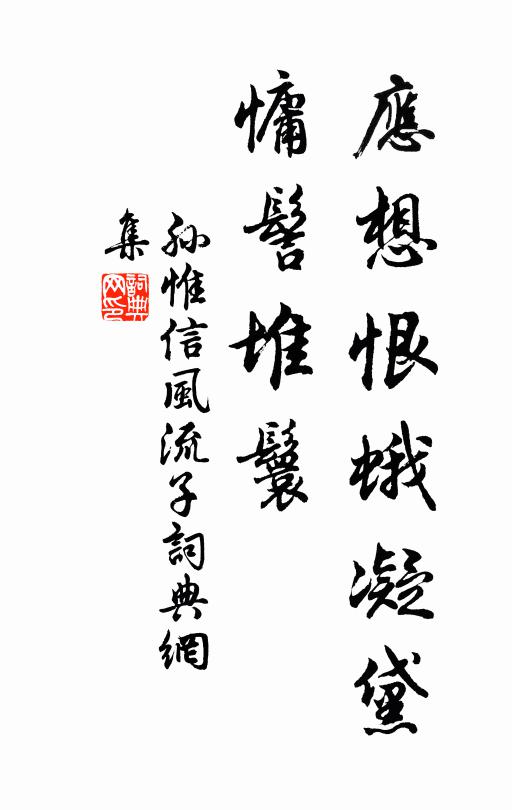 應想恨蛾凝黛
慵髻堆鬟
孫惟信風流子詞典網
集
詞典
网印